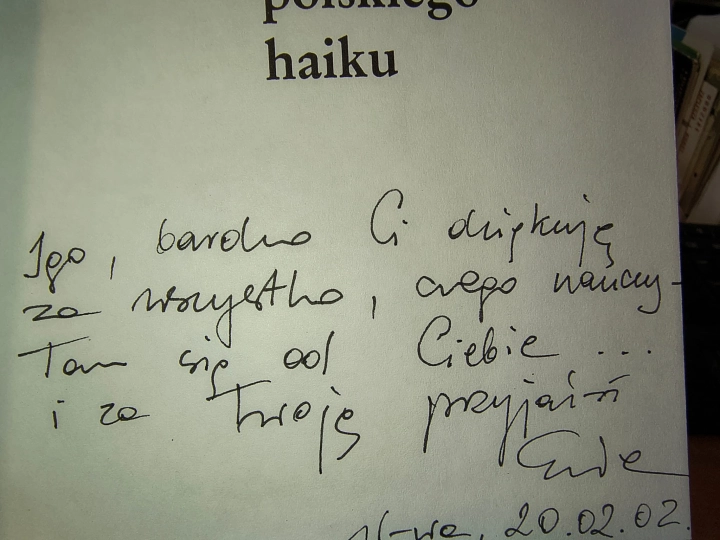 polskiego
haiku
Igo, bardzo Ci dziękuję
za wszystko, czego nauczy-
łam się od Ciebie ...
i za Twoją przyjaźń
20.02.02.